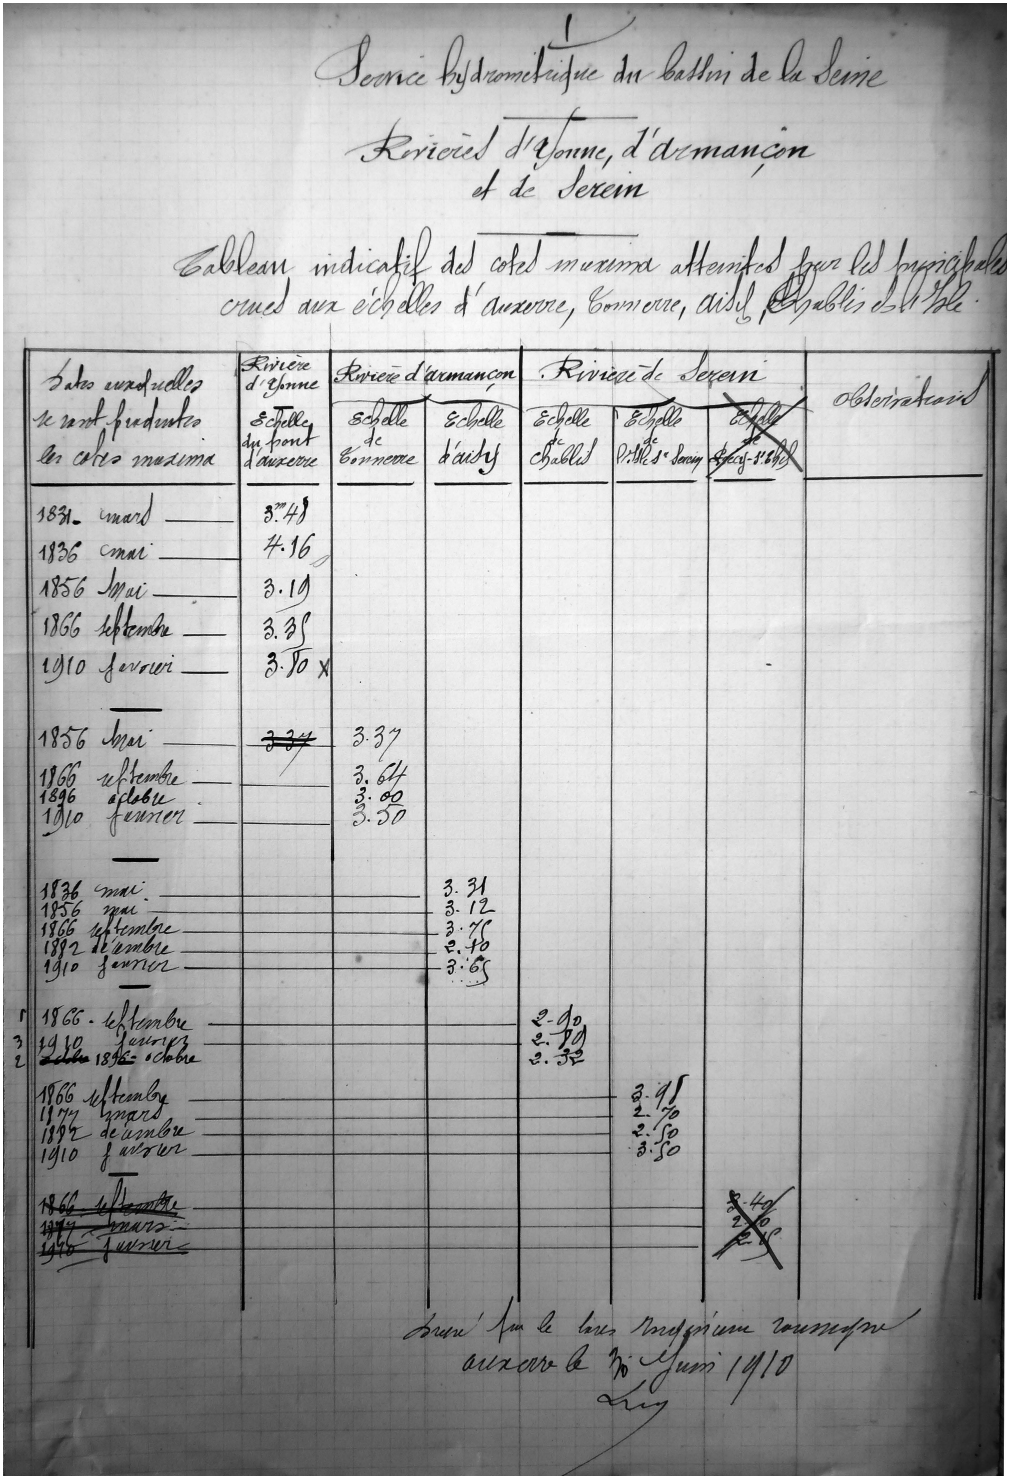 1
Service hydrométrique du bassin de la Seine
Rivières d'Yonne, d'Armançon
et de Serein
Tableau indicatif des cotes maxima atteintes par les principales
crues aux échelles d'Auxerre, Tonnerre, Aisy, Chablis et l'Isle.
Dates auxquelles
se sont produites
les cotes maxima
Rivière
d'Yonne
Echelle
du pont
d'Auxerre
Rivière d'Armançon
Echelle
de
Tonnerre
Echelle
d'Aisy
Rivière de Serein
Echelle
de
Chablis
Echelle
de
l'Isle s/ Serein
Echelle
de
Observations
1831 - mars 3m.48
1836 mai 4.16
1856 Mai 3.19
1866 septembre 3.35
1910 février 3.80 x
1856 Mai 3.37 3.37
1866 septembre 3.64
1896 octobre 3.00
1910 février 3.50
1836 mai 3.31
1856 mai 3.12
1866 septembre 3.75
1882 décembre 2.40
1910 février 3.65
1 1866 - septembre 2.90
3 1910 février 2.89
2 1896 - octobre 2.32
1866 septembre 3.98
1877 mars 2.70
1882 décembre 2.50
1910 février 3.50
1866 septembre 3.40
1877 mars
1910 février
Dressé par le Ingénieur soussigné
Auxerre le 30 Juin 1910